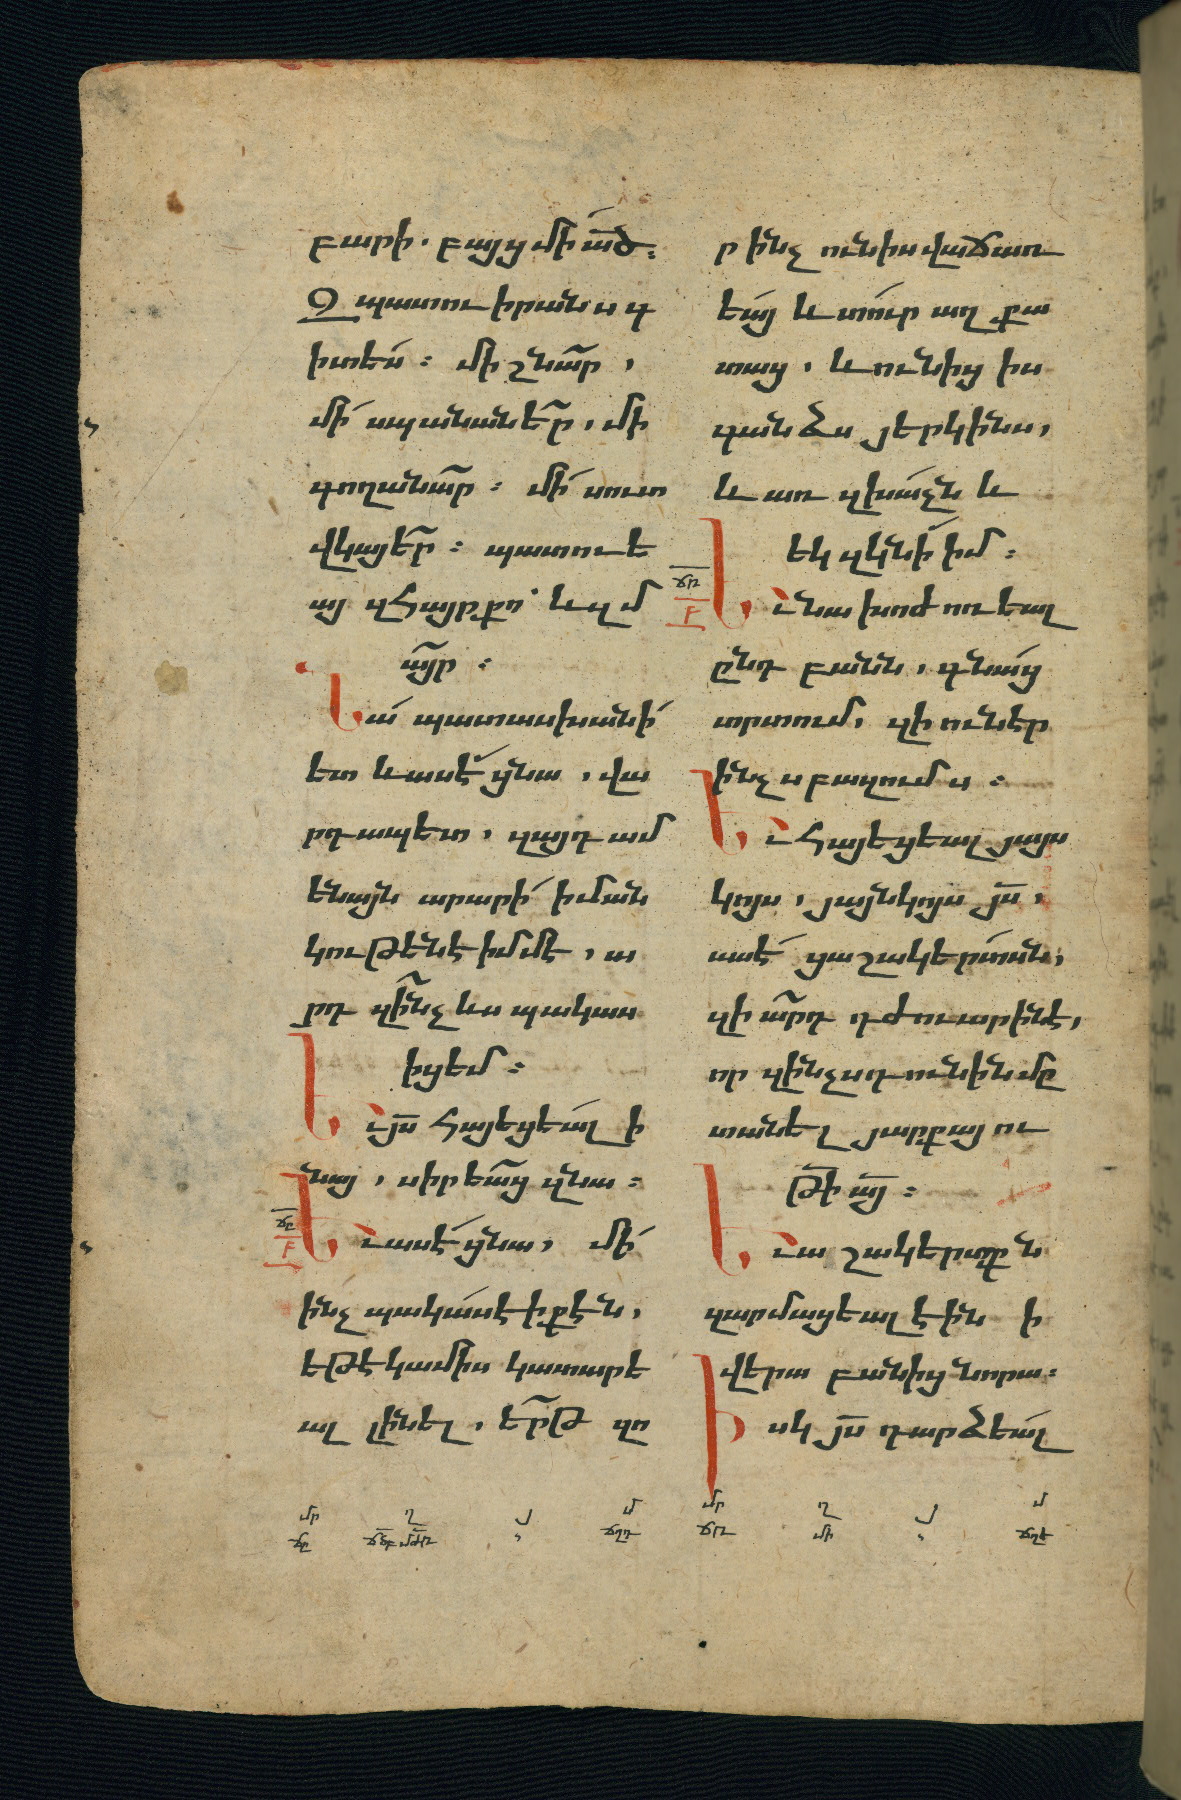 բարի. բայց մի ա՟ծ։
Զպատուիրանս գ
իտես։ մի շնար,
մի սպանաներ, մի
գողանար։ մի սուտ
վկայեր։ պատուե
այ զհայր քո՝ և զմ
այր։
Նա պատասխանի
ետ և ասէ ցնա, վա
րդապետ, զայդ ամ
ենայն արարի ի ման
կութենէ իմմէ, ա
րդ զինչ ևս պակաս
իցեմ։
Եւ յ՟ս հայեցեալ ի
նայ, սիրեաց զնա։
ճը
Բ
Եւ ասէ ցնա, մի
ինչ պակաս է ի քէն,
եթէ կամիս կատարե
ալ լինել, երթ զո
ր ինչ ունիս վաճառ
եայ և տուր աղքա
տաց, և ունից իս
գանձս յերկինս,
և առ զխաչն և
եկ զկնի իմ։
ճթ
Բ
Եւ նա խոժոռեալ
ընդ բանն, գնաց
տրտում, զի ունէր
ինչս բազումս։
Եւ հայեցեալ յայս
կոյս, յայնկոյս յ՟ս,
ասէ ցաշակերտսն,
զիարդ դժուարին է,
որ զինչսդ ունին մը
տանել յարքայու
թի ա՟յ։
Եւ աշակերտքն
զարմացեալ էին ի
վերա բանից նորա։
Իսկ յ՟ս դարձեալ